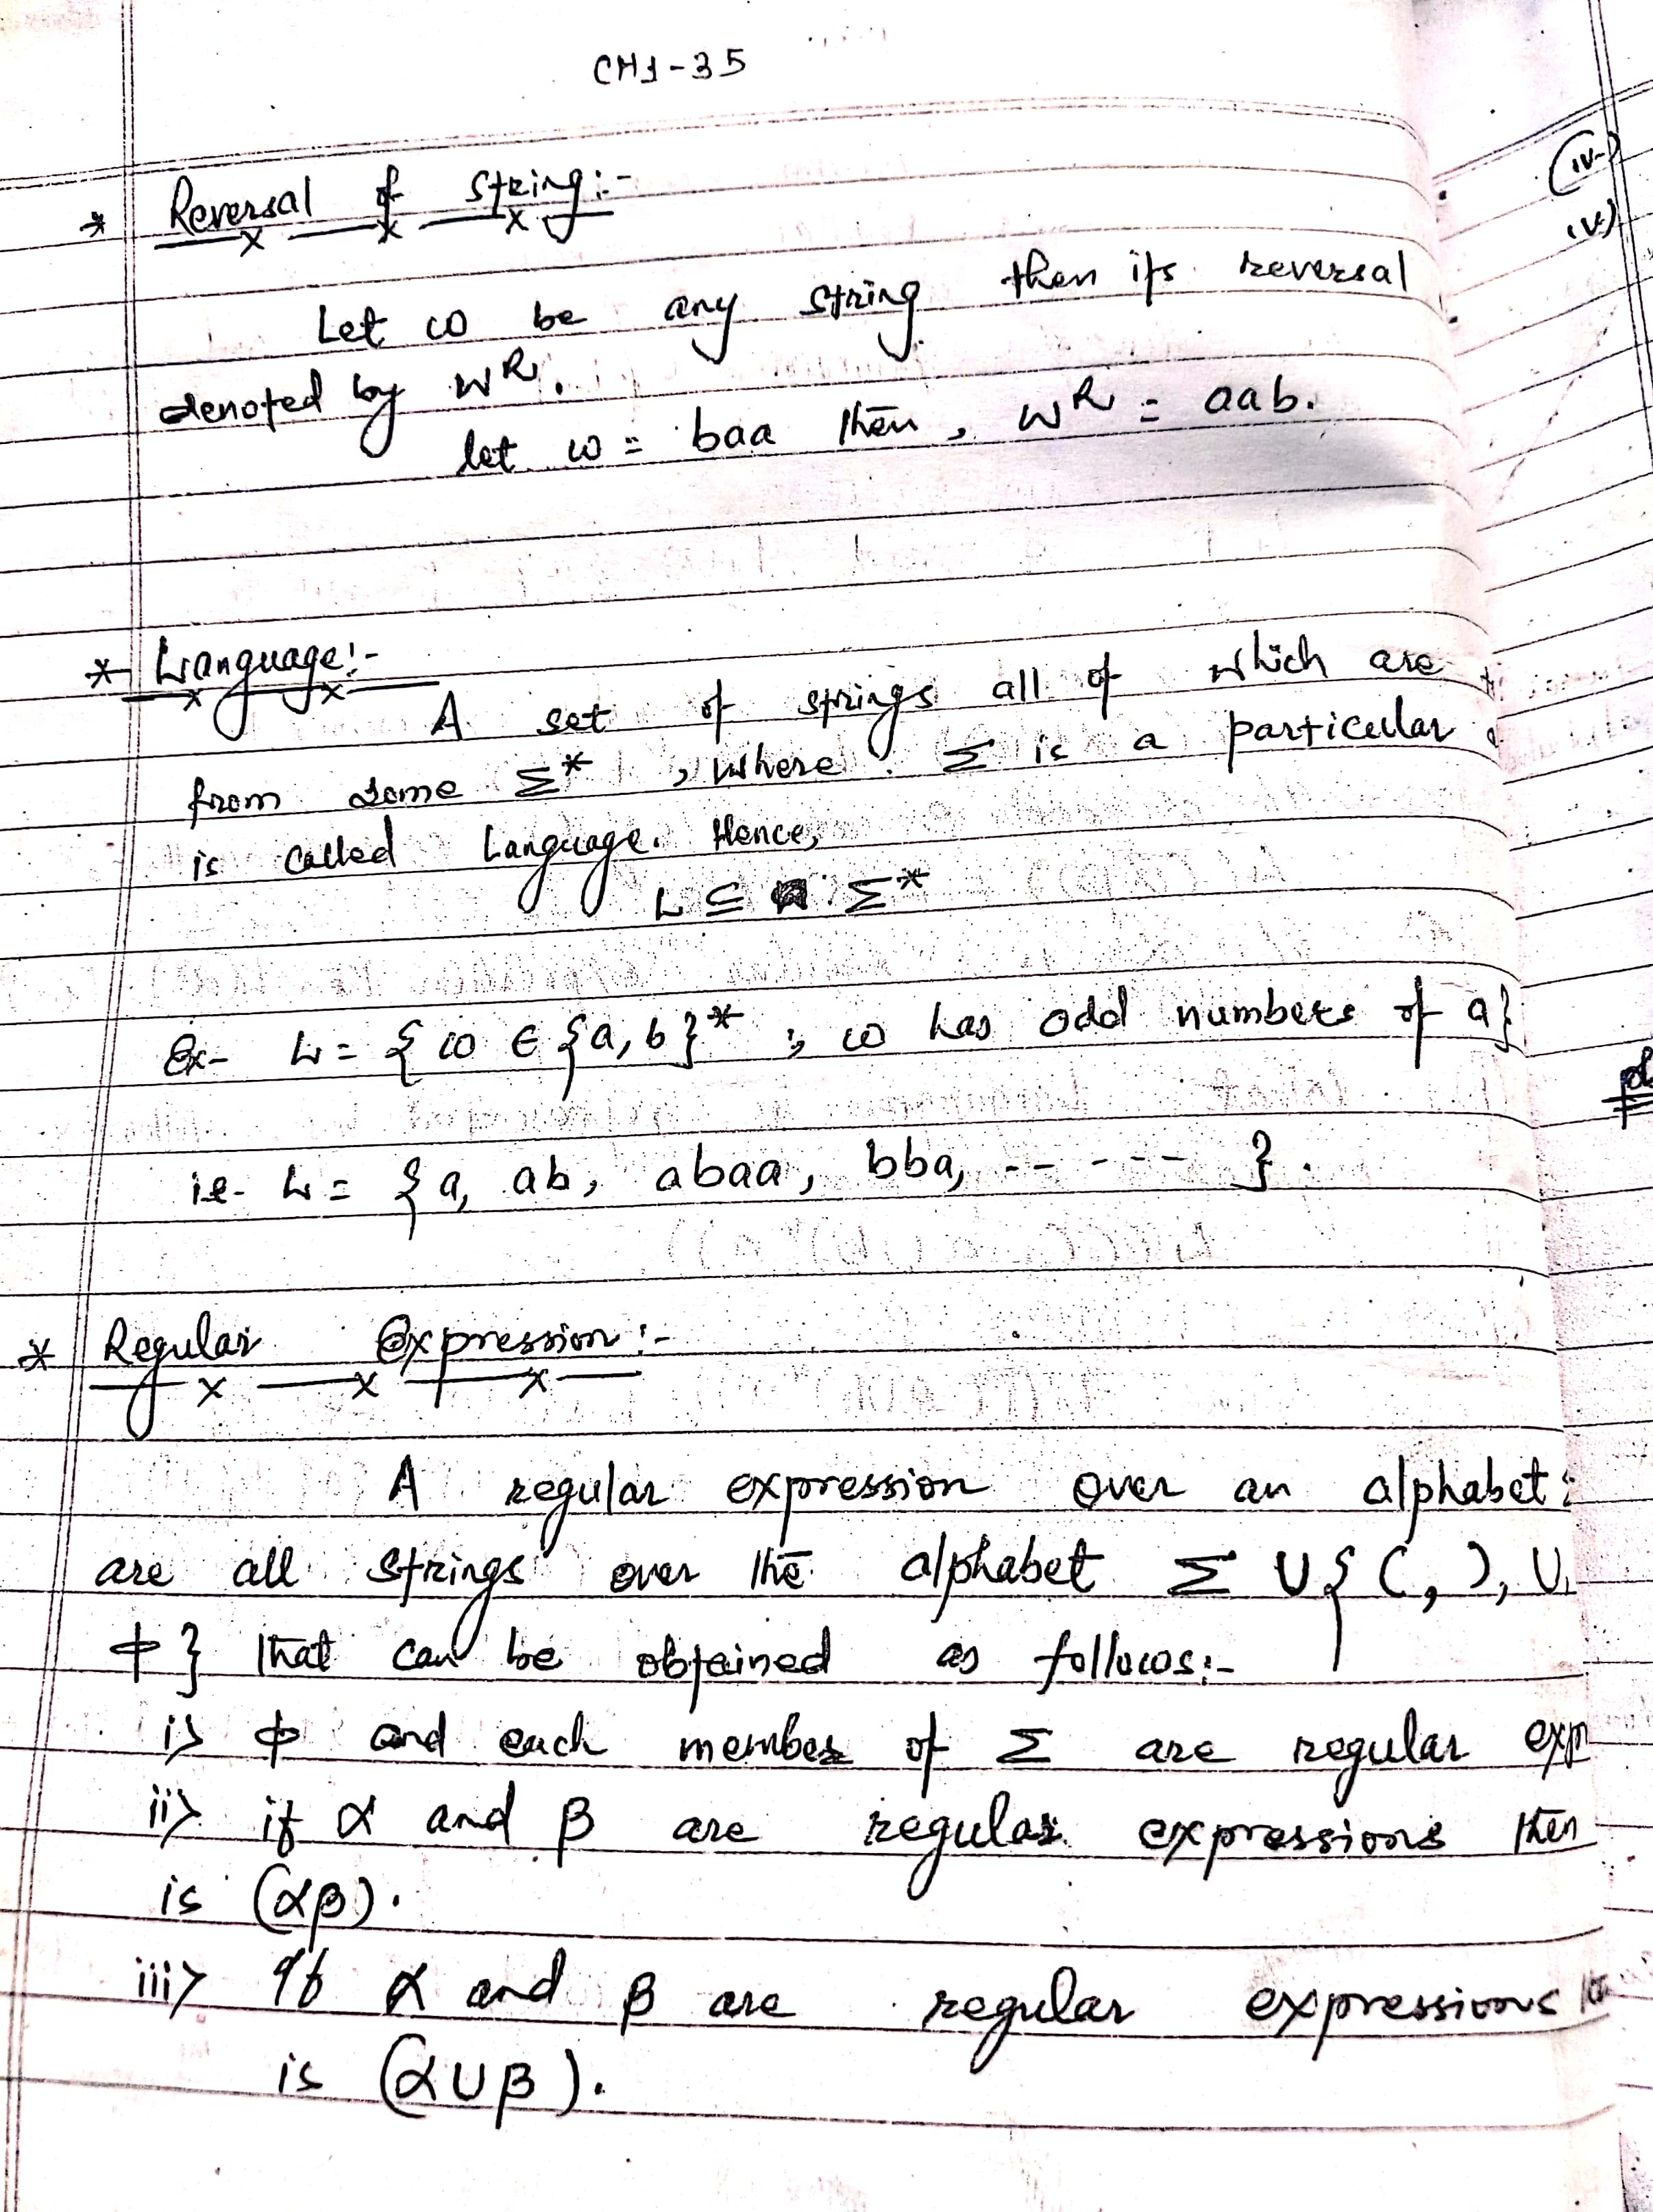 CH1-35
* Reversal of string:-
Let ω be any string then its reversal
denoted by w^R.
let ω = baa then, w^R = aab.
* Language:-
A set of strings all of which are
from some Σ*, where Σ is a particular
is called Language. Hence,
L ⊆ Σ*
Ex- L = {ω ∈ {a,b}* ; ω has odd numbers of a}
i.e- L = {a, ab, abaa, bba, ------ }.
* Regular Expression:-
A regular expression over an alphabet
are all strings over the alphabet Σ U { (, ), U,
ϕ } that can be obtained as follows:-
i> ϕ and each member of Σ are regular exp
ii> if α and β are regular expressions then
is (αβ).
iii> If α and β are regular expressions
is (α∪β).
(iv-)
(v)